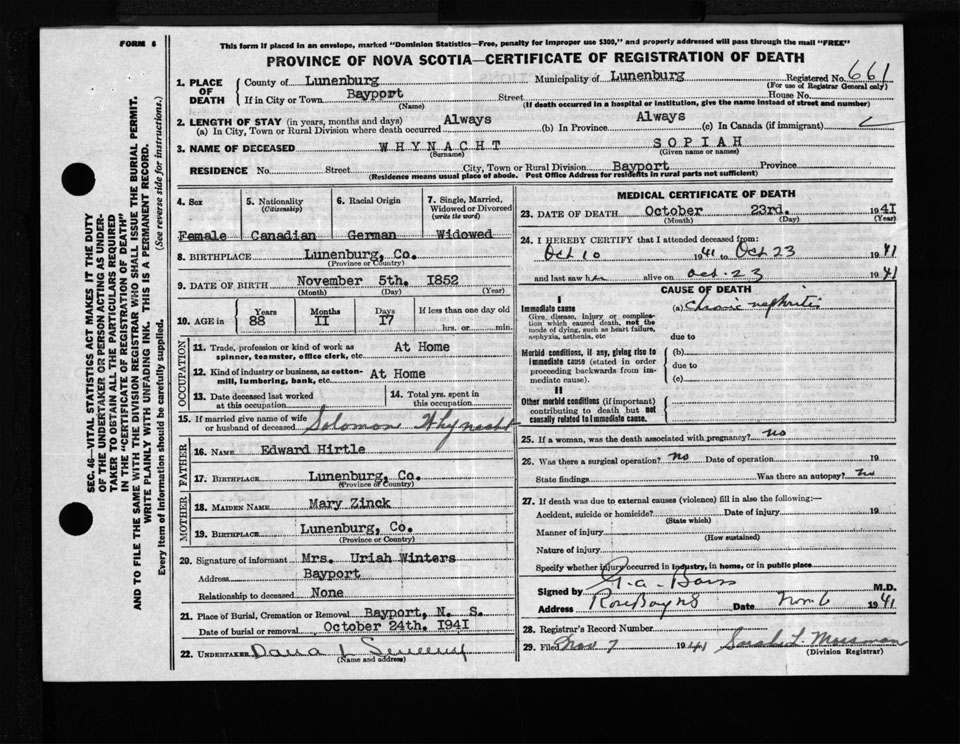 FORM 6
This form if placed in an envelope, marked "Dominion Statistics—Free, penalty for improper use $300," and properly addressed will pass through the mail "FREE"
PROVINCE OF NOVA SCOTIA—CERTIFICATE OF REGISTRATION OF DEATH
1. PLACE OF DEATH County of Lunenburg Municipality of Lunenburg Registered No. 661
(For use of Registrar General only)
If in City or Town Bayport Street House No.
(Name) (If death occurred in a hospital or institution, give the name instead of street and number)
2. LENGTH OF STAY (in years, months and days)
(a) In City, Town or Rural Division where death occurred Always (b) In Province Always (c) In Canada (if immigrant)
3. NAME OF DECEASED WHYNACHT SOPIAH
(Surname) (Given name or names)
RESIDENCE No. Street City, Town or Rural Division Bayport Province
(Residence means usual place of abode. Post Office Address for residents in rural parts not sufficient)
4. Sex 5. Nationality (Citizenship) 6. Racial Origin 7. Single, Married, Widowed or Divorced (write the word)
Female Canadian German Widowed
8. BIRTHPLACE Lunenburg, Co.
(Province or Country)
9. DATE OF BIRTH November 5th. 1852
(Month) (Day) (Year)
10. AGE in Years Months Days If less than one day old
88 II I7 hrs. or min.
OCCUPATION
11. Trade, profession or kind of work as spinner, teamster, office clerk, etc. At Home
12. Kind of industry or business, as cotton-mill, lumbering, bank, etc. At Home
13. Date deceased last worked at this occupation 14. Total yrs. spent in this occupation
15. If married give name of wife or husband of deceased Solomon Whynacht
FATHER
16. NAME Edward Hirtle
17. BIRTHPLACE Lunenburg, Co.
(Province or Country)
MOTHER
18. MAIDEN NAME Mary Zinck
19. BIRTHPLACE Lunenburg, Co.
(Province or Country)
20. Signature of informant Mrs. Uriah Winters
Address Bayport
Relationship to deceased None
21. Place of Burial, Cremation or Removal Bayport, N. S.
Date of burial or removal October 24th. I94I
22. UNDERTAKER
(Name and address)
MEDICAL CERTIFICATE OF DEATH
23. DATE OF DEATH October 23rd. 1941
(Month) (Day) (Year)
24. I HEREBY CERTIFY that I attended deceased from:
Oct 10 1941 to Oct 23 1941
and last saw her alive on Oct. 23 1941
CAUSE OF DEATH
I
Immediate cause (a) Chronic nephritis
Give disease, injury or complication which caused death, not the mode of dying, such as heart failure, asphyxia, asthenia, etc
due to
Morbid conditions, if any, giving rise to immediate cause (stated in order proceeding backwards from immediate cause).
(b)
due to
(c)
II
Other morbid conditions (if important) contributing to death but not causally related to immediate cause.
25. If a woman, was the death associated with pregnancy? no
26. Was there a surgical operation? no Date of operation 19
State findings Was there an autopsy? no
27. If death was due to external causes (violence) fill in also the following:—
Accident, suicide or homicide? Date of injury 19
(State which)
Manner of injury
(How sustained)
Nature of injury
Specify whether injury occurred in industry, in home, or in public place
Signed by M.D.
Address Rose Bay NS Date Nov 6 1941
28. Registrar's Record Number
29. Filed Nov 7 1941 Sarah L. Mossman
(Division Registrar)
SEC. 46—VITAL STATISTICS ACT MAKES IT THE DUTY
OF THE UNDERTAKER OR PERSON ACTING AS UNDER-
TAKER TO OBTAIN ALL THE PARTICULARS REQUIRED
IN THE "CERTIFICATE OF REGISTRATION OF DEATH"
AND TO FILE THE SAME WITH THE DIVISION REGISTRAR WHO SHALL ISSUE THE BURIAL PERMIT.
WRITE PLAINLY WITH UNFADING INK. THIS IS A PERMANENT RECORD.
Every item of information should be carefully supplied. (See reverse side for instructions.)